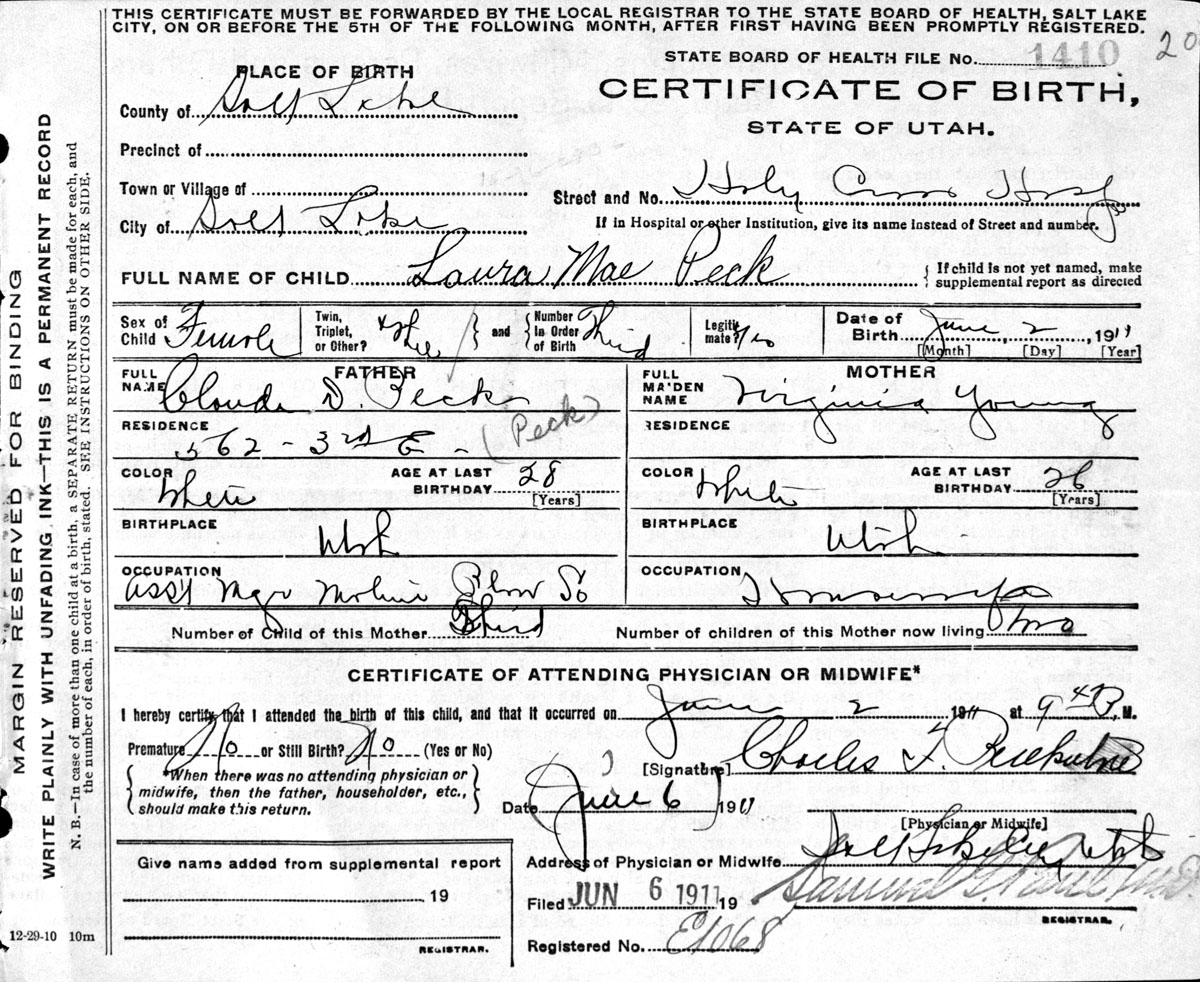 THIS CERTIFICATE MUST BE FORWARDED BY THE LOCAL REGISTRAR TO THE STATE BOARD OF HEALTH, SALT LAKE
CITY, ON OR BEFORE THE 5TH OF THE FOLLOWING MONTH, AFTER FIRST HAVING BEEN PROMPTLY REGISTERED.
STATE BOARD OF HEALTH FILE No. 1410 20
PLACE OF BIRTH
CERTIFICATE OF BIRTH,
STATE OF UTAH.
County of Salt Lake
Precinct of
Town or Village of
Street and No. Holy Cross Hosp
City of Salt Lake
If in Hospital or other Institution, give its name instead of Street and number.
FULL NAME OF CHILD Laura Mae Peck
{ If child is not yet named, make supplemental report as directed
Sex of Child Female
Twin, Triplet, or Other?
} and {
Number in Order of Birth Third
Legitimate? Yes
Date of Birth June 2, 1911
[Month] [Day] [Year]
FATHER
FULL NAME Claude D. Peck
(Peck)
RESIDENCE 562 - 3rd E -
COLOR White
AGE AT LAST BIRTHDAY 28
[Years]
BIRTHPLACE Utah
OCCUPATION Asst Mgr Moline Plow Co
MOTHER
FULL MAIDEN NAME Virginia Young
RESIDENCE
COLOR White
AGE AT LAST BIRTHDAY 26
[Years]
BIRTHPLACE Utah
OCCUPATION Housewife
Number of Child of this Mother Third
Number of children of this Mother now living Two
CERTIFICATE OF ATTENDING PHYSICIAN OR MIDWIFE*
I hereby certify that I attended the birth of this child, and that it occurred on June 2 1911 at 9 P. M.
Premature No or Still Birth? No (Yes or No)
{ *When there was no attending physician or midwife, then the father, householder, etc., should make this return. }
[Signature] Charles F.
[Physician or Midwife]
Date June 6 1911
Address of Physician or Midwife Salt Lake City Utah
Filed JUN 6 1911 19
Samuel G. Paul
REGISTRAR.
Registered No. E1068
Give name added from supplemental report
19
REGISTRAR.
MARGIN RESERVED FOR BINDING
WRITE PLAINLY WITH UNFADING INK—THIS IS A PERMANENT RECORD
N. B.—In case of more than one child at a birth, a SEPARATE RETURN must be made for each, and
the number of each, in order of birth, stated. SEE INSTRUCTIONS ON OTHER SIDE.
12-29-10 10m